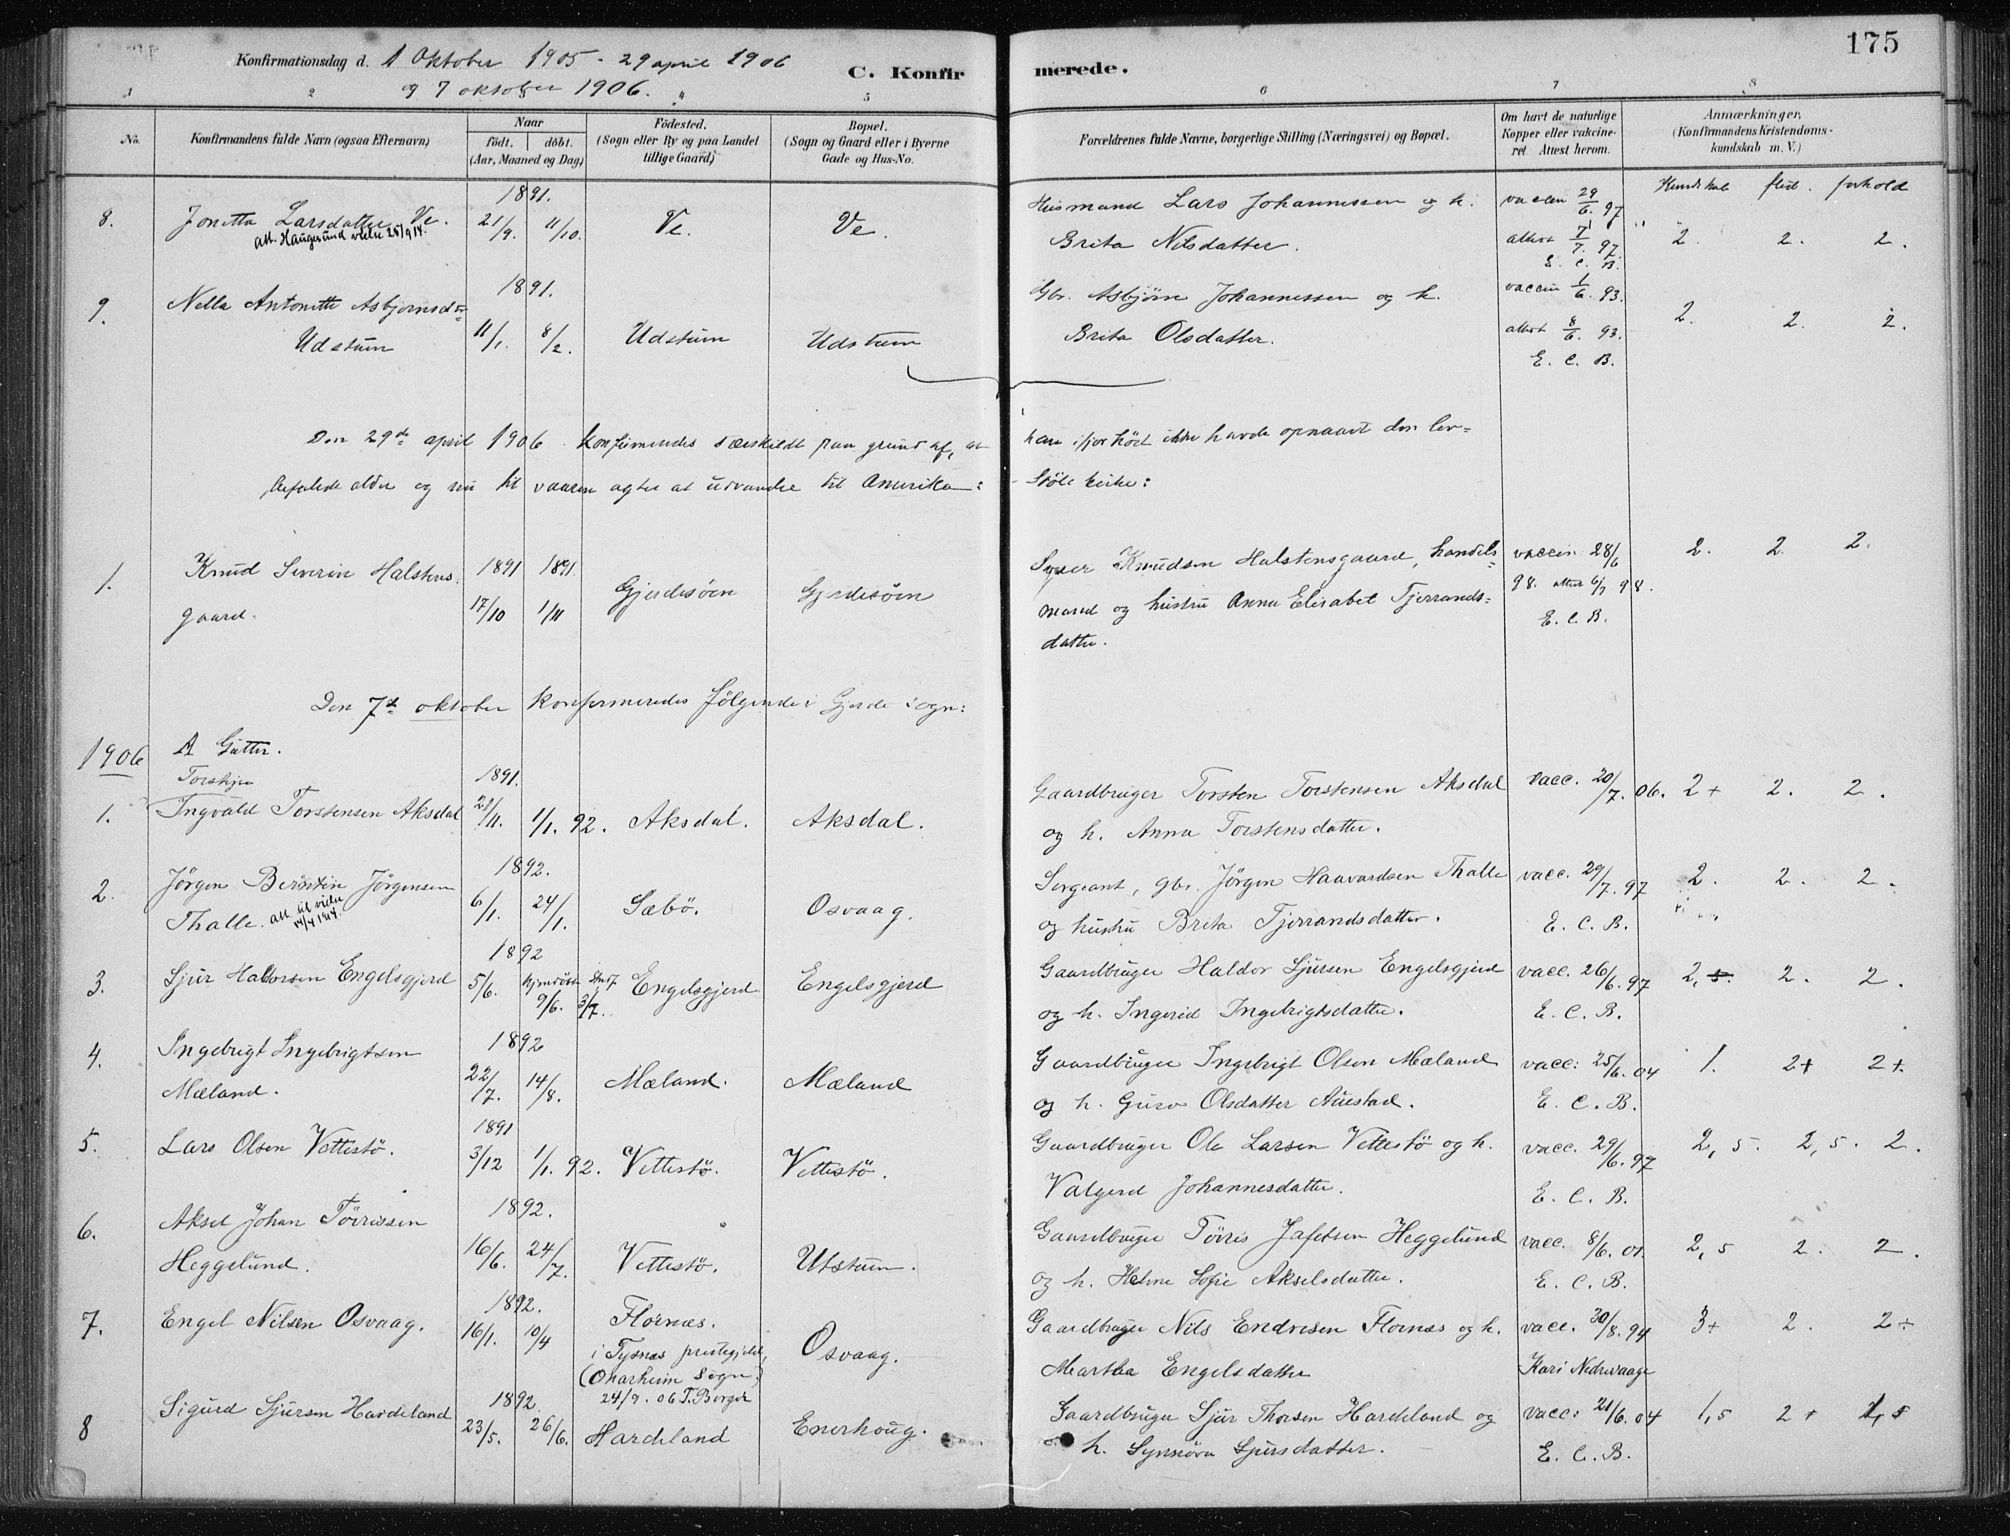 175
Konfirmationsdag d. 1 Oktober 1905 - 29 april 1906
og 7 oktober 1906.
C. Konfirmerede.
1 2 3 4 5 6 7 8
No.
Konfirmandens fulde Navn (ogsaa Efternavn)
Naar
födt. döbt.
(Aar, Maaned og Dag)
Födested.
(Sogn eller By og paa Landet
tillige Gaard)
Bopæl.
(Sogn og Gaard eller i Byerne
Gade og Hus-No.
Forældrenes fulde Navne, borgerlige Stilling (Næringsvei) og Bopæl.
Om havt de naturlige
Kopper eller vakcine-
ret Attest herom.
Anmærkninger,
(Konfirmandens Kristendoms-
kundskab m. V.)
Kundskab flid. forhold
8. Jonetta Larsdatter Ve. 1891. 21/9. 11/10. Ve. Ve. Husmand Lars Johannessen og h. vaccin 29/6. 97 2. 2. 2.
att. Haugesund 25/9 14.
Brita Nilsdatter. attest 7/7. 97. E. C. B.
9. Nella Antonette Asbjørnsdtr 1891. Gbr. Asbjørn Johannessen og h. vaccin 1/6. 93. 2. 2. 2.
Udstum 11/1. 8/2. Udstum Udstum Brita Olsdatter. attest 8/6. 93.
E. C. B.
Den 29de april 1906 konfirmeredes særskildt paa grund af, at han ifjor höst ikke havde opnaaet den lov=
befalede alder og nu til vaaren agter at udvandre til Amerika: Stöle kirke:
1. Knud Severin Halstens 1891 1891 Gjerdesöen Gjerdesöen Knudsen Halstensgaard, handels= vaccin. 28/6 2. 2. 2.
gaard. 17/10 1/11 mand og hustru Anna Elisabet Tjerrands= 98. attest 6/7 98.
datter. E. C. B.
Den 7de oktober konfirmeredes fölgende i Gjerde sogn:
1906 A Gutter.
Torstein 1891.
1. Ingvald Torstensen Aksdal 21/11. 1/1. 92. Aksdal. Aksdal. Gaardbruger Torsten Torstensen Aksdal vacc. 20/7. 06. 2+ 2. 2.
og h. Anna Torstensdatter.
2. Jörgen Berntin Jörgensen 1892. Sergeant, gbr. Jörgen Haavardsen Thalle vacc. 29/7. 97 2. 2. 2.
Thalle. att. til vielse 14/4 1914. 6/1. 24/1. Sæbö. Osvaag. og hustru Brita Tjerrandsdatter. E. C. B.
3. Sjur Haldorsen Engelsgjerd 1892 5/6. hjemdöbt 9/6. 3/7. Engelsgjerd Engelsgjerd Gaardbruger Haldor Sjursen Engelsgjerd vacc. 26/6. 97 2, 5. 2. 2.
og h. Ingerid Ingebrigtsdatter. E. C. B.
4. Ingebrigt Ingebrigtsen 1892 Gaardbruger Ingebrigt Olsen Mæland vacc: 25/6. 04 1. 2+ 2+.
Mæland. 22/7. 14/8. Mæland. Mæland og h. Guro Olsdatter Auestad. E. C. B.
5. Lars Olsen Vettestö. 1891 3/12 1/1. 92. Vettestö. Vettestö. Gaardbruger Ole Larsen Vettestö og h. vacc. 29/6. 97 2, 5. 2, 5. 2.
Valgerd Johannesdatter. E. C. B.
6. Aksel Johan Törrissen 1892. Gaardbruger Törris Jafetsen Heggelund vacc. 8/6. 01. 2, 5 2. 2.
Heggelund. 16/6. 24/7. Vettestö. Utstum. og h. Helene Sofie Akselsdatter. E. C. B.
7. Engel Nilsen Osvaag. 1892. 16/1. 10/4 Flornæs. Osvaag. Gaardbruger Nils Endresen Flornæs og h. vacc. 30/8. 94 3+ 2. 2+
i Tysnæs prestegjeld, (Onarheim Sogn) 24/9. 06 T. Berger Martha Engelsdatter Kari Nedrevaage
8 Sigurd Sjursen Hardeland 1892. 23/5. 26/6. Hardeland Enerhoug. Gaardbruger Sjur Thorsen Hardeland og vacc: 21/6. 04 1, 5 2+ 1, 5
h. Synnöva Sjursdatter. E. C. B.